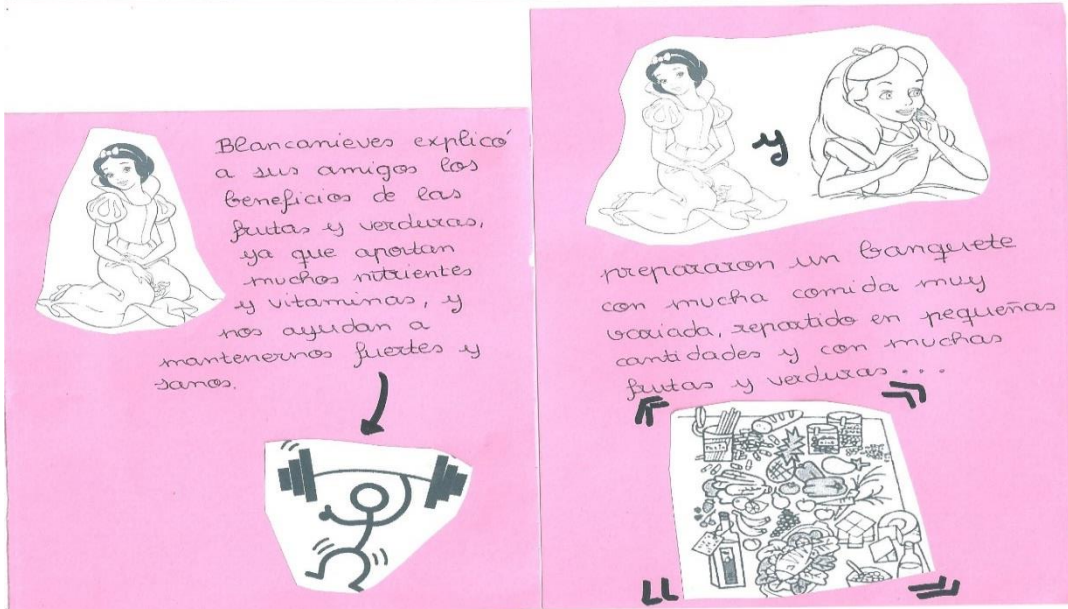 Blancanieves explicó
a sus amigos los
beneficios de las
frutas y verduras,
ya que aportan
muchos nitrientes
y vitaminas, y
nos ayudan a
mantenernos fuertes y
sanos.
y
prepararon un banquete
con mucha comida muy
variada, repartido en pequeñas
cantidades y con muchas
frutas y verduras...